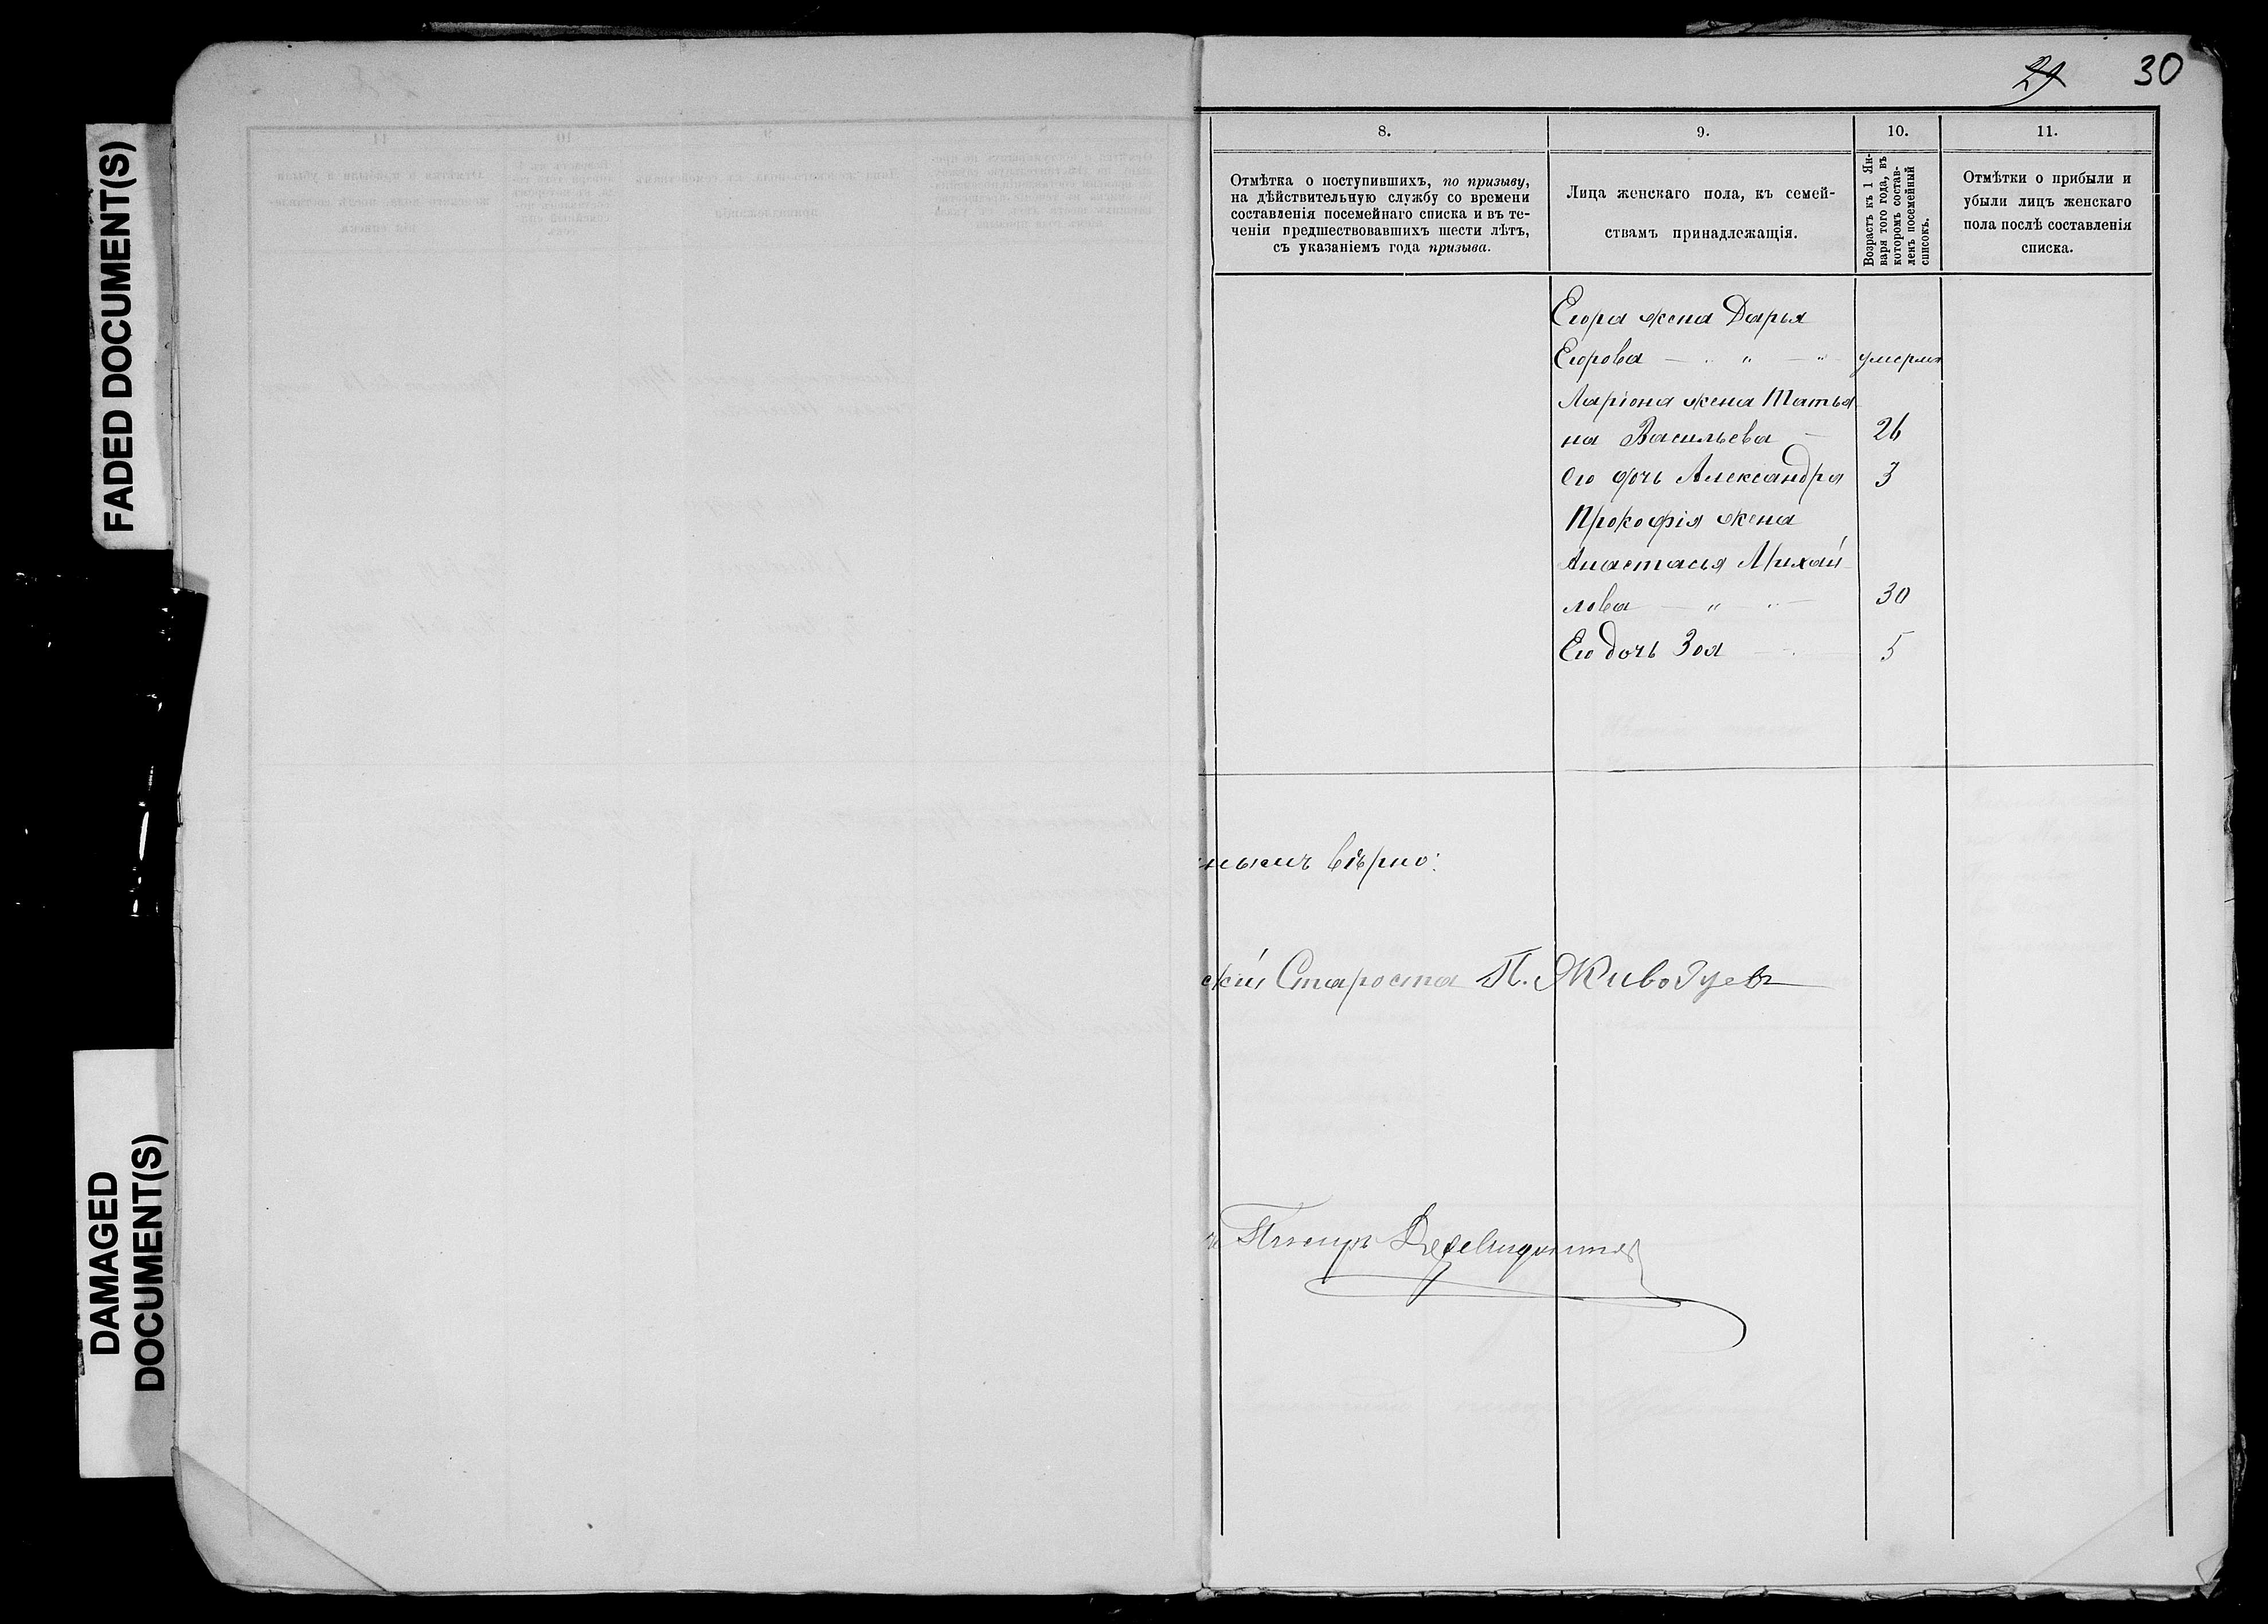 FADED DOCUMENT(S)
DAMAGED
DOCUMENT(S)
29
30
8.
9.
10.
11.
Отмѣтка о поступившихъ, по призыву,
на дѣйствительную службу со времени
составленія посемейнаго списка и въ те-
ченіи предшествовавшихъ шести лѣтъ,
съ указаніемъ года призыва.
Лица женскаго пола, къ семей-
ствамъ принадлежащія.
Возрастъ къ 1 Ян-
варя того года, въ
которомъ состав-
ленъ посемейный
списокъ.
Отмѣтки о прибыли и
убыли лицъ женскаго
пола послѣ составленія
списка.
Егора жена Дарья
Егорова — " — " умерла
Ларіона жена Татья-
на Васильева — 26
Его дочь Александра 3
Прокофія жена
Анастасья Михай-
лова — " — " — 30
Его дочь Зоя — 5
нымъ вѣрно:
скій Староста П. Живодуевъ
Писарь